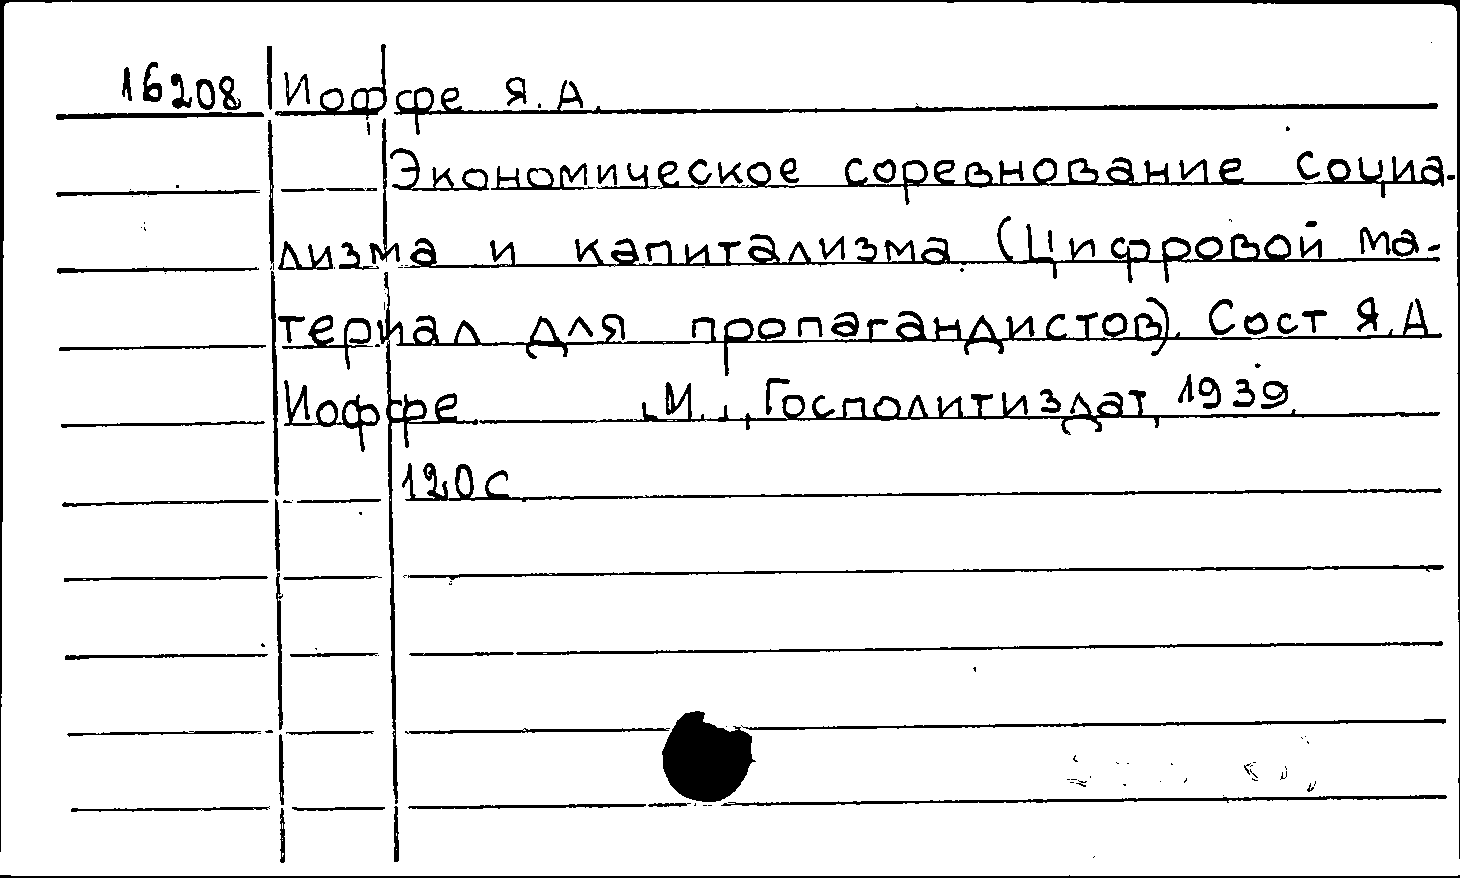 16208 Иоффе Я.А.
Экономическое соревнование социа-
лизма и капитализма. (Цифровой ма-
териал для пропагандистов). Сост Я.А
Иоффе. М., Госполитиздат, 1939.
120с